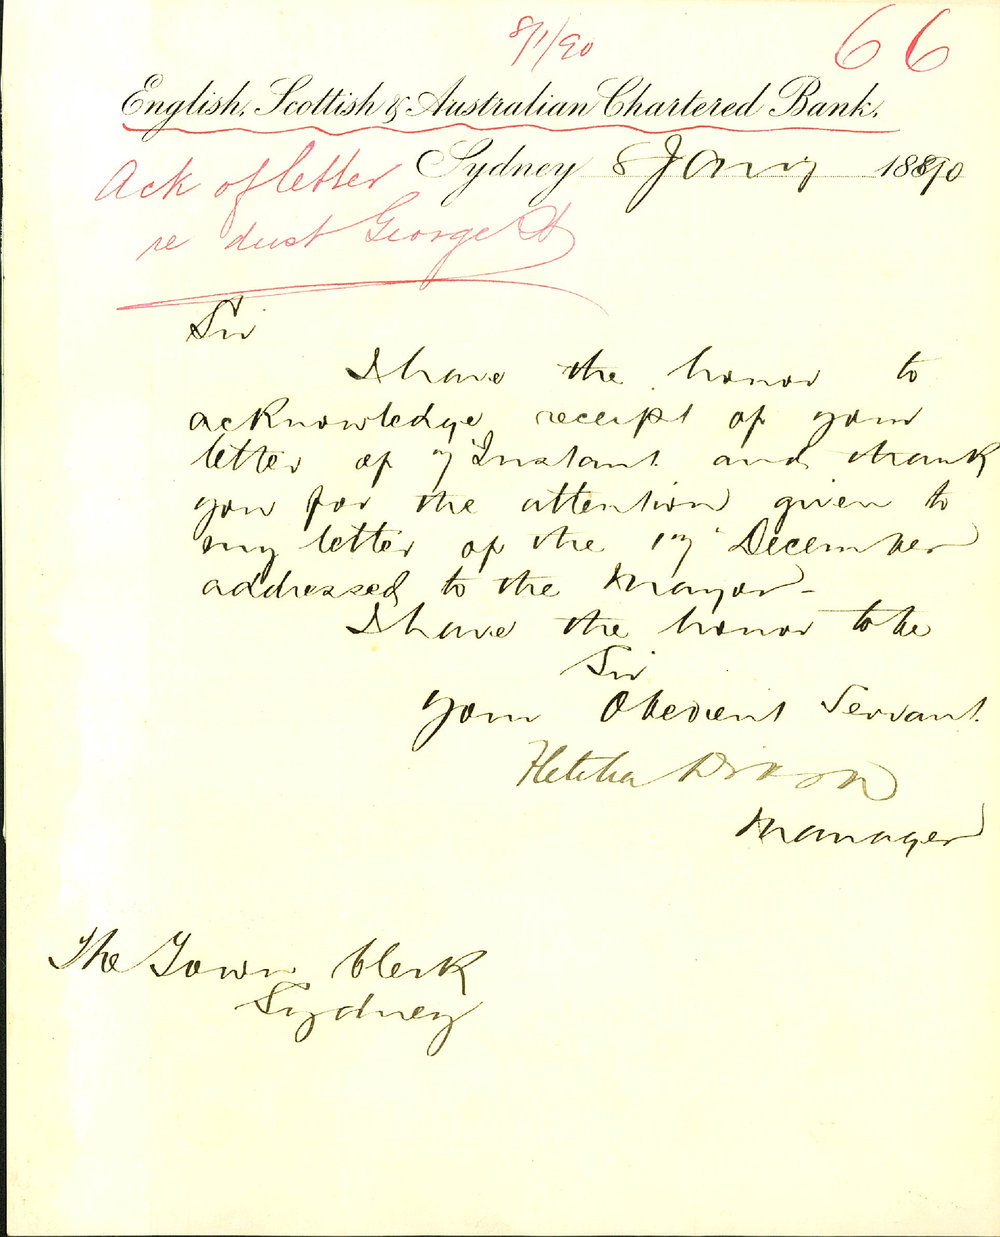 8/1/90
66
English, Scottish & Australian Chartered Bank.
Sydney 8 Jany 1890
Ack of letter
re dust George St
Sir
I have the honor to
acknowledge receipt of your
letter of 7 Instant and thank
you for the attention given to
my letter of the 17 December
addressed to the Mayor -
I have the honor to be
Sir
Your Obedient Servant
Fletcher Dixon
Manager
The Town Clerk
Sydney